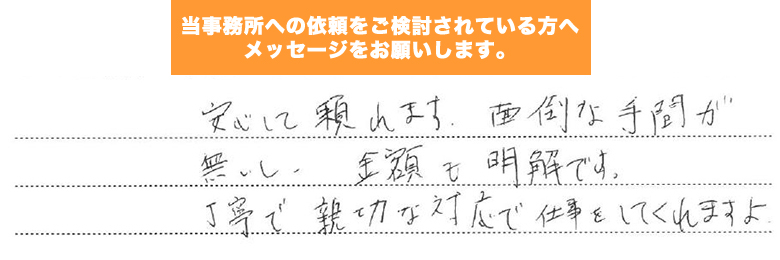 当事務所への依頼をご検討されている方へ
メッセージをお願いします。
安心して頼れます。面倒な手間が
無いし、金額も明解です。
丁寧で親切な対応で仕事をしてくれますよ。